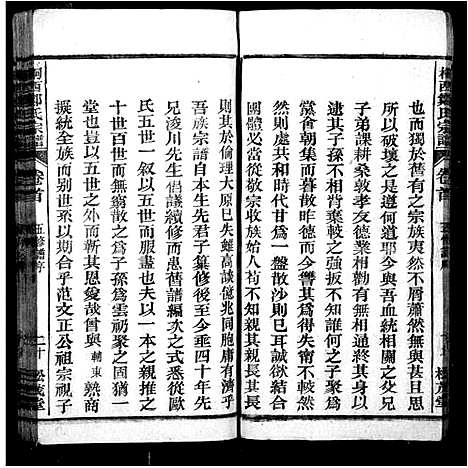 也而獨於舊有之宗族夷然不屑蕭然無與甚且思
所以破壞之是遵何道耶今夫與吾血統相關之父兄
子弟課耕桑敦孝友德業相勸有無相通終其身以
逮子孫而不相背棄較之茫不知誰何之子聚爲
黨會朝集而暮散昨德而今讐其爲得失甯不較
然則處共和時代甘爲一盤散沙則已耳誠欲結合
團體當自敬宗收族始人苟不知親其親長其長
則其於倫理大原已失雖高談億兆同胞庸有濟乎
吾族宗譜自本生先君子纂修後今四十年先
兄淩川先生倡議續修而患舊譜編次之式悉從歐
氏五世一叙以五世而服盡也夫以一本之大而
十世百世而無窮散之爲子孫爲雲礽聚之爲
堂也豈以五世之外而斬其恩爰哉曾與輔東熟商
擬統全族而别世系以期合乎范文正公祖宗視子
桐西鄭氏宗譜
卷首
五修譜序
二十
松茂堂